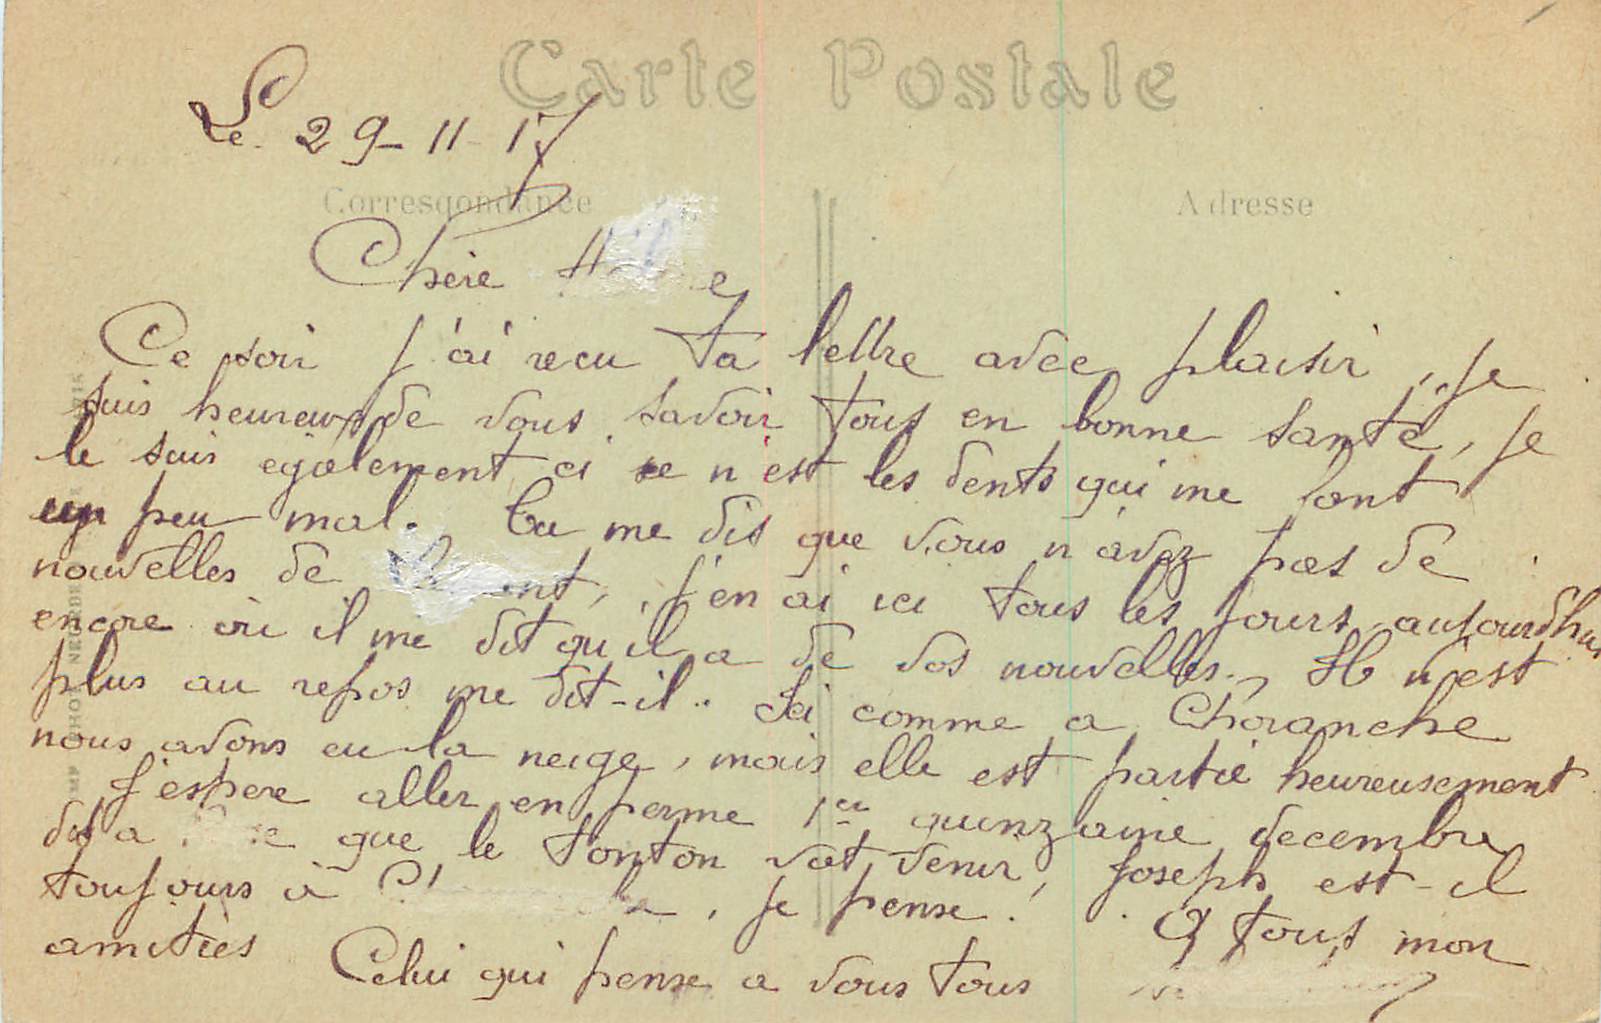 Carte Postale
Le 29-11-17
Correspondance
Adresse
Chère
Ce soir j'ai recu ta lettre avec plaisir, je
suis heureux de vous savoir tous en bonne santé, je
le suis egalement ci ce n'est les dents qui me font
un peu mal. Tu me dis que vous n'avez pas de
nouvelles de j'en ai ici tous les jours, aujourd'hui
encore où il me dit qu'il a de vos nouvelles. Il n'est
plus au repos me dit-il. Ici comme a Choranche
nous avons eu la neige, mais elle est partie heureusement
J'espere aller en perme 1ere quinzaine decembre
dis a que le tonton vat venir, Joseph est-il
toujours à , je pense !
A tous mon
amitiés
Celui qui pense a vous tous